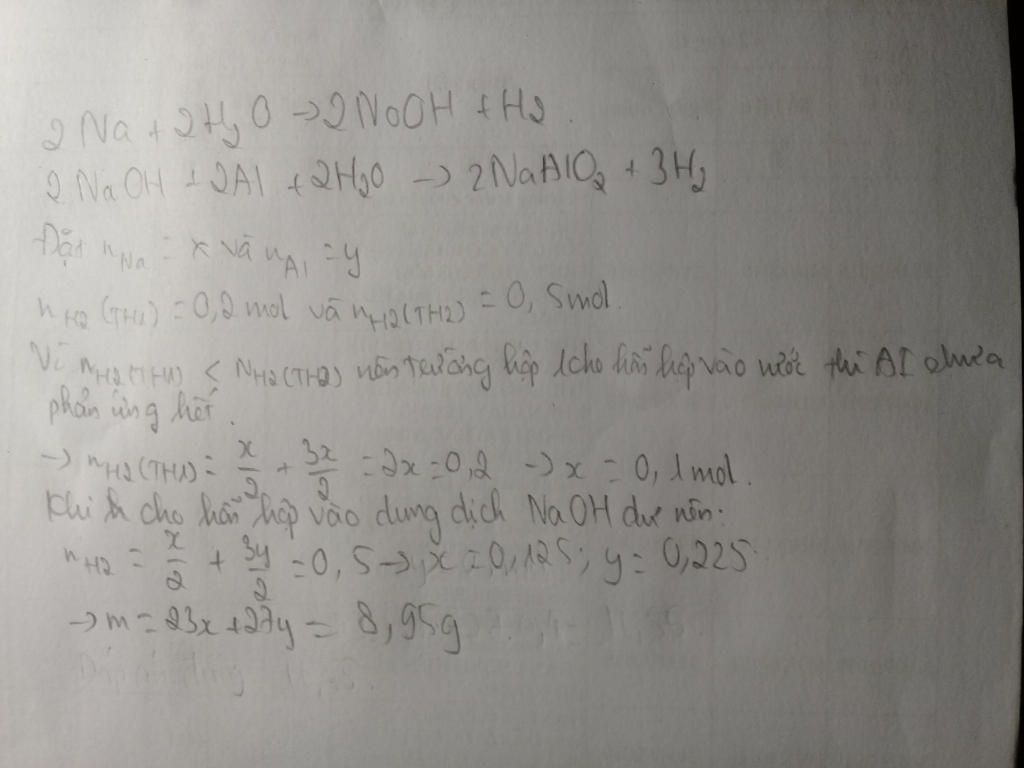 2Na + 2H₂O → 2NaOH + H2.
2NaOH + 2Al + 2H₂O → 2NaAlO₂ + 3H₂
Đặt nNa = x và nAl = y
nH2 (TH1) = 0,2 mol và nH2(TH2) = 0,5mol.
Vì nH2(TH1) < NH2(TH2) nên trường hợp 1 cho hỗn hợp vào nước thì Al chưa
phản ứng hết.
→ nH2(TH1) = x/2 + 3x/2 = 2x = 0,2 → x = 0,1mol.
Khi cho hỗn hợp vào dung dịch NaOH dư nên:
nH2 = x/2 + 3y/2 = 0,5 → x = 0,125; y = 0,225
→ m = 23x + 27y = 8,95g